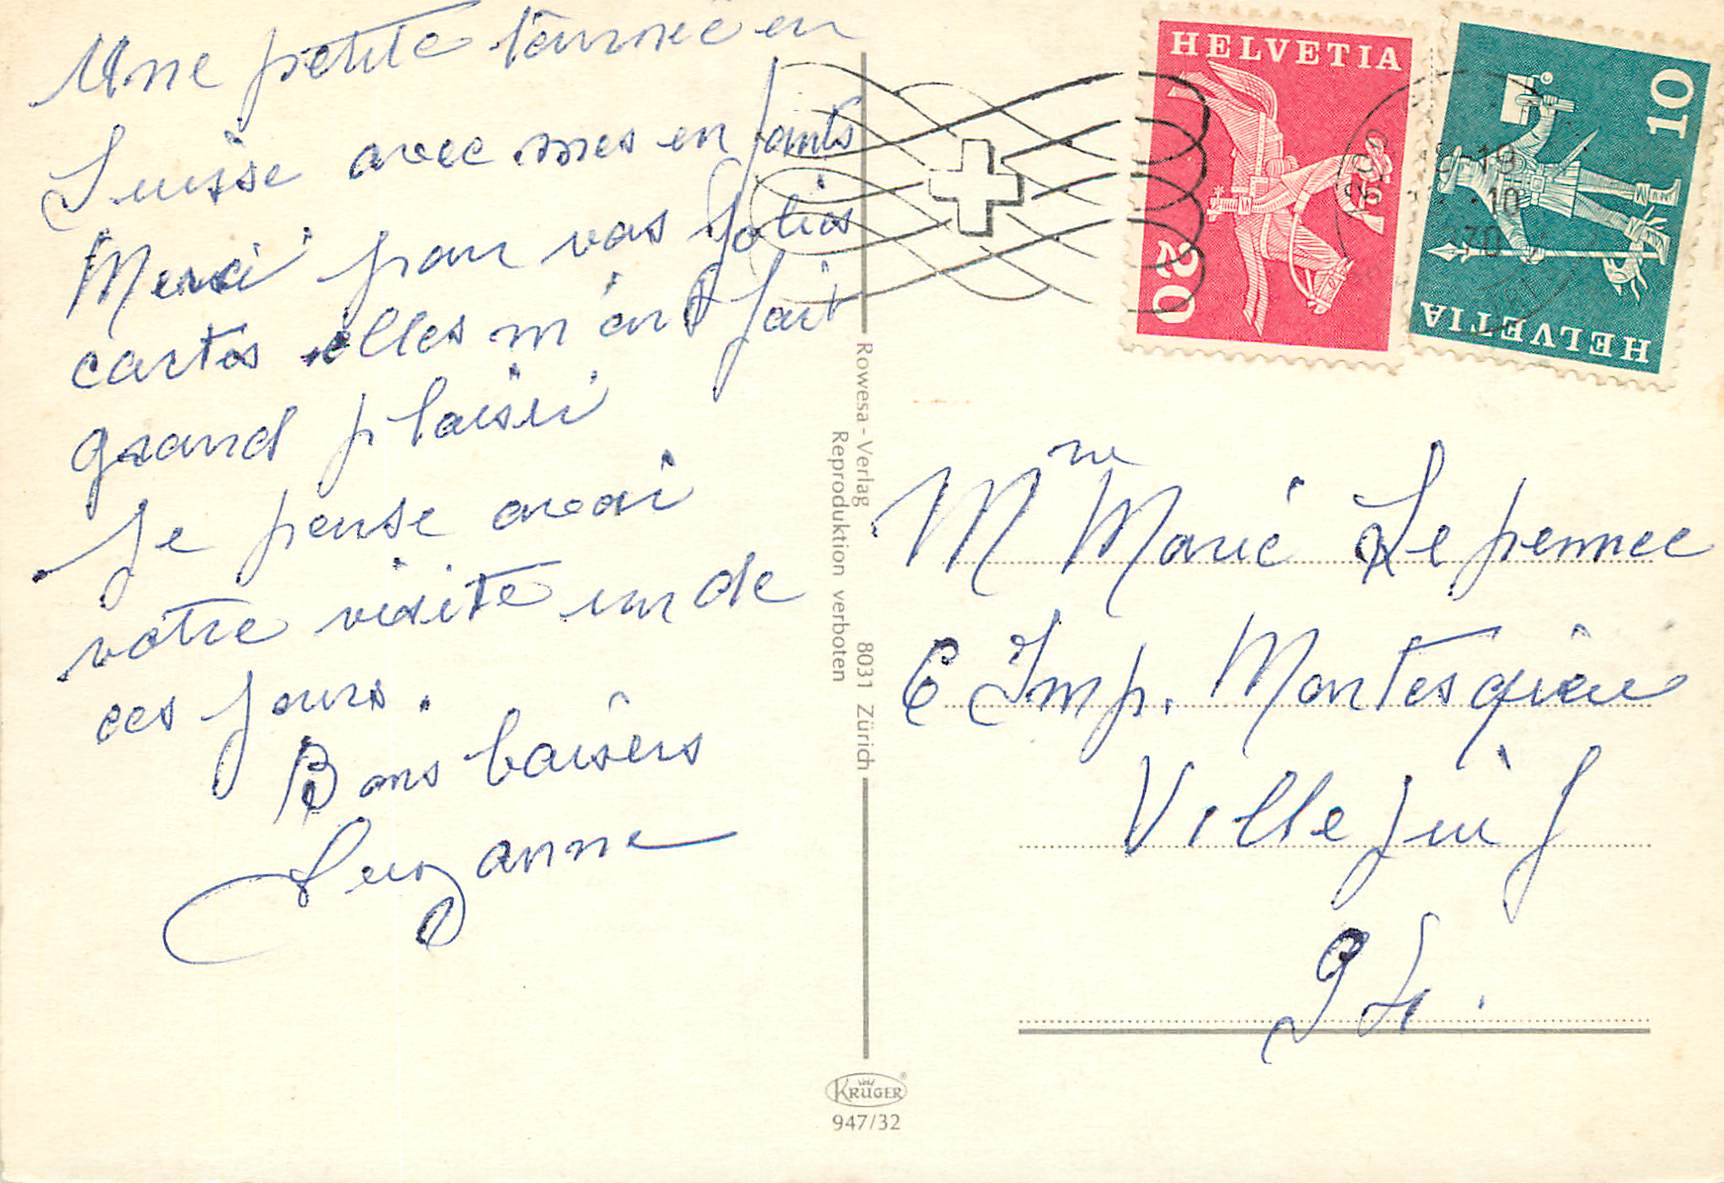 Une petite tournée en
Suisse avec mes enfants
Merci pour vos jolies
cartes elles m'ont fait
grand plaisir
Je pense avoir
votre visite un de
ces jours.
Bons baisers
Suzanne
HELVETIA
20
10
HELVETIA
Rowesa-Verlag 8031 Zürich
Reproduktion verboten
Mme Marie Le pennec
6 Imp. Montesquieu
Villejuif
94.
KRÜGER
947/32